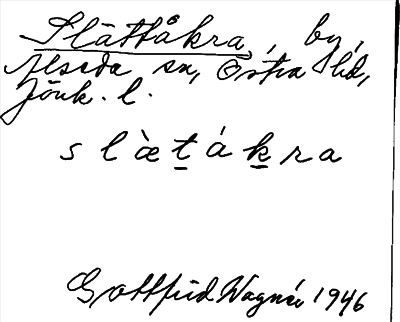 Slättåkra, by,
Alseda sn, Östra hd,
Jönk. l.
s l æ̀ t á k r a
Gottfrid Wagnér 1946